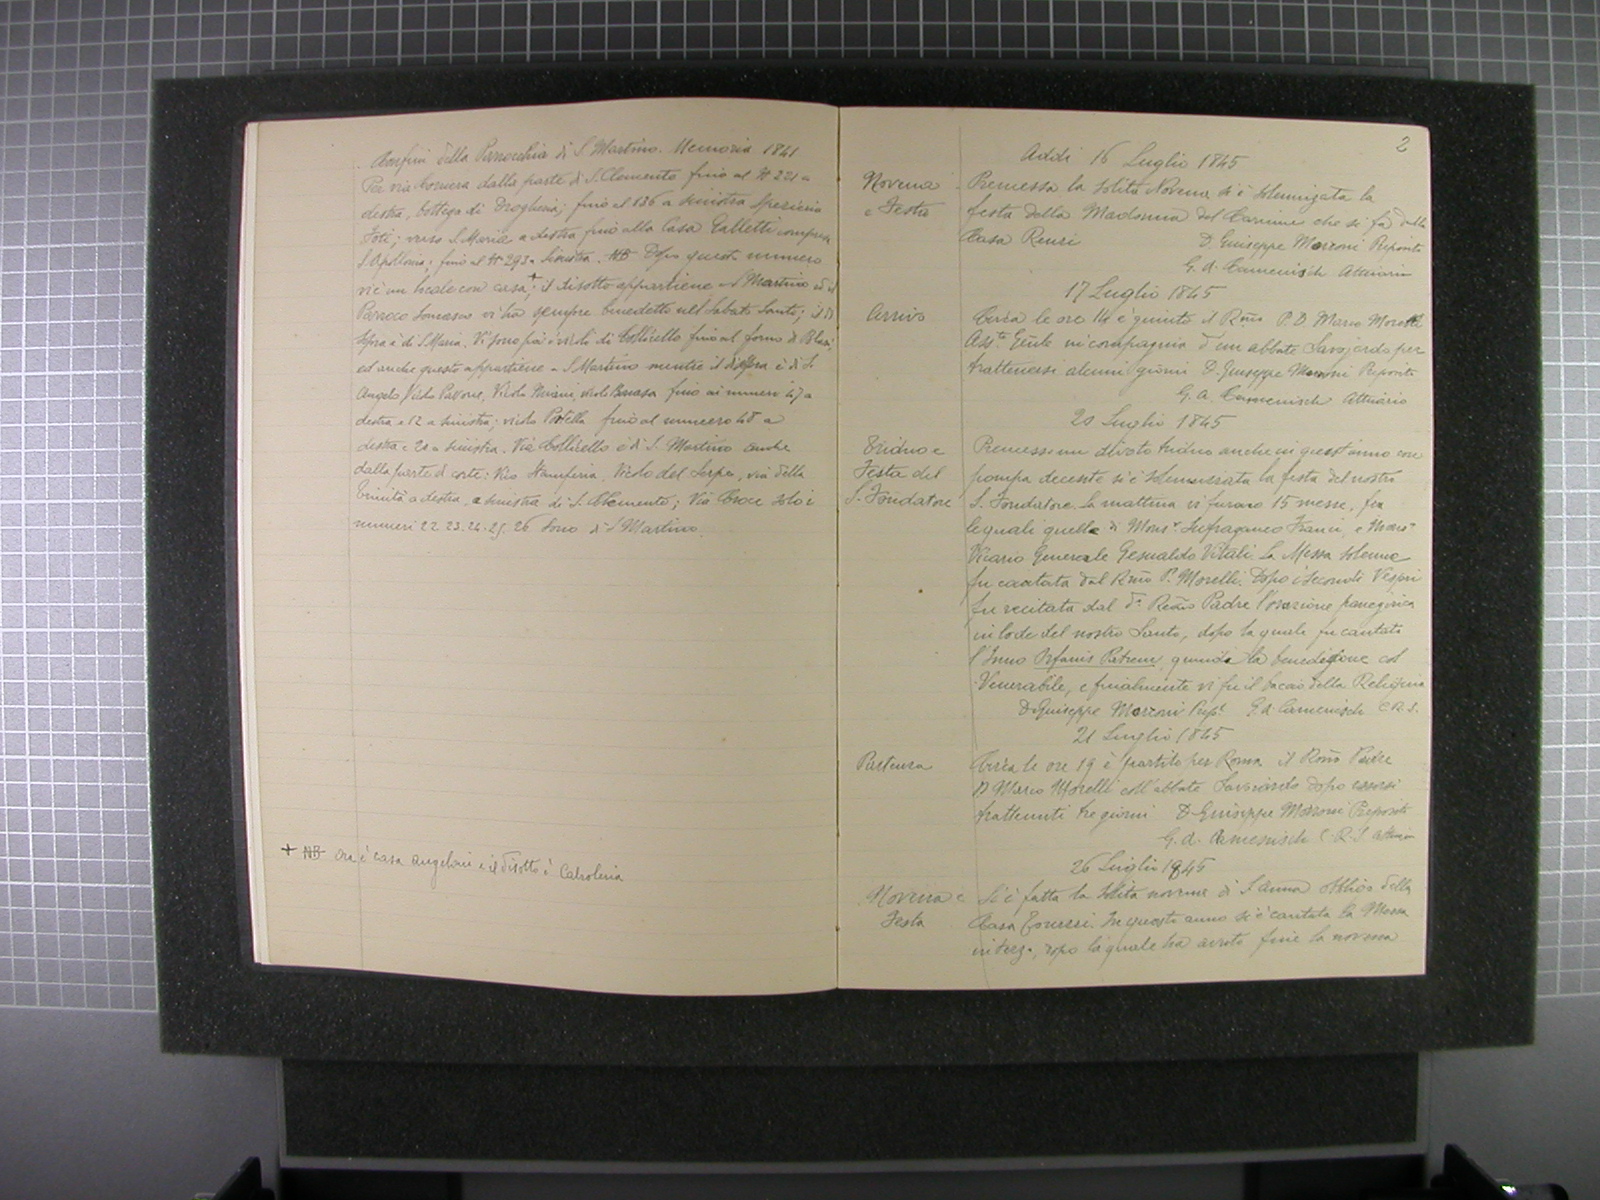 Confini della Parrocchia di S. Martino. Memoria 1841
Per via Cornera dalla parte di S. Clemente fino al N° 221 a
destra, bottega di Drogheria; fino al 136 a sinistra Spezieria
Foti; verso S. Maria a destra fino alla Casa Galletti compresa
S. Apollonia; fino al N° 293 a sinistra. NB Dopo questo numero
vi è un locale con casa +; il disotto appartiene a S. Martino ed il
Parroco Somasco vi ha sempre benedetto nel Sabato Santo; il di
sopra è di S. Maria. Vi sono poi i vicoli di Collicello fino al forno di Blasi,
ed anche questo appartiene a S. Martino mentre il disopra è di S.
Angelo, Vicolo Pavone, Vicolo Miriani, vicolo fino ai numeri 47 a
destra e 12 a sinistra; vicolo Patella fino al numero 48 a
destra e 20 a sinistra. Via Collicello è di S. Martino anche
dalla parte di corte: Via Stamperia, Vicolo del Serpe, via della
Trinità a destra, a sinistra di S. Clemente; Via Croce solo i
numeri 22. 23. 24. 25. 26 sono di S. Martino.
+ NB Ora è casa Angeloni e il disotto è Calzoleria
2
Addi 16 Luglio 1845
Novena Premessa la solita Novena si è solennizata la
e Festa festa della Madonna del Carmine che si fa dalla
Casa Renzi D. Giuseppe Marconi Preposto
G. A. Camenisch Attuario
17 Luglio 1845
Arrivo Circa le ore 14 è giunto il Rmo P. D. Marco Morelli
Asste Gnle in compagnia d'un abbate Savojardo per
trattenersi alcuni giorni D. Giuseppe Marconi Preposto
G. A. Camenisch Attuario
20 Luglio 1845
Triduo e Premesso un divoto triduo anche in quest'anno con
Festa del pompa decente si è solennizzata la festa del nostro
S. Fondatore S. Fondatore. La mattina vi furono 15 messe, fra
le quali quella di Monsr Suffraganeo Franci, e Monsr
Vicario Generale Gesualdo Vitali. La Messa solenne
fu cantata dal Rmo P. Morelli. Dopo i secondi Vespri
fu recitata dal do Rmo Padre l'orazione panegirica
in lode del nostro Santo, dopo la quale fu cantato
l'Inno Orfanis Patrem, quindi la benedizione col
Venerabile, e finalmente vi fu il bacio della Reliquia
D. Giuseppe Marconi Prepto G. A. Camenisch C. R. S.
21 Luglio 1845
Partenza Circa le ore 19 è partito per Roma il Rmo Padre
D. Marco Morelli coll'abbate Savoiardo dopo essersi
trattenuti tre giorni D. Giuseppe Marconi Preposto
G. A. Camenisch C. R. S. Attuario
26 Luglio 1845
Novena e Si è fatta la solita novena di S. Anna obbligo della
Festa Casa In questo anno si è cantata la Messa
in terzo, dopo la quale ha avuto fine la novena